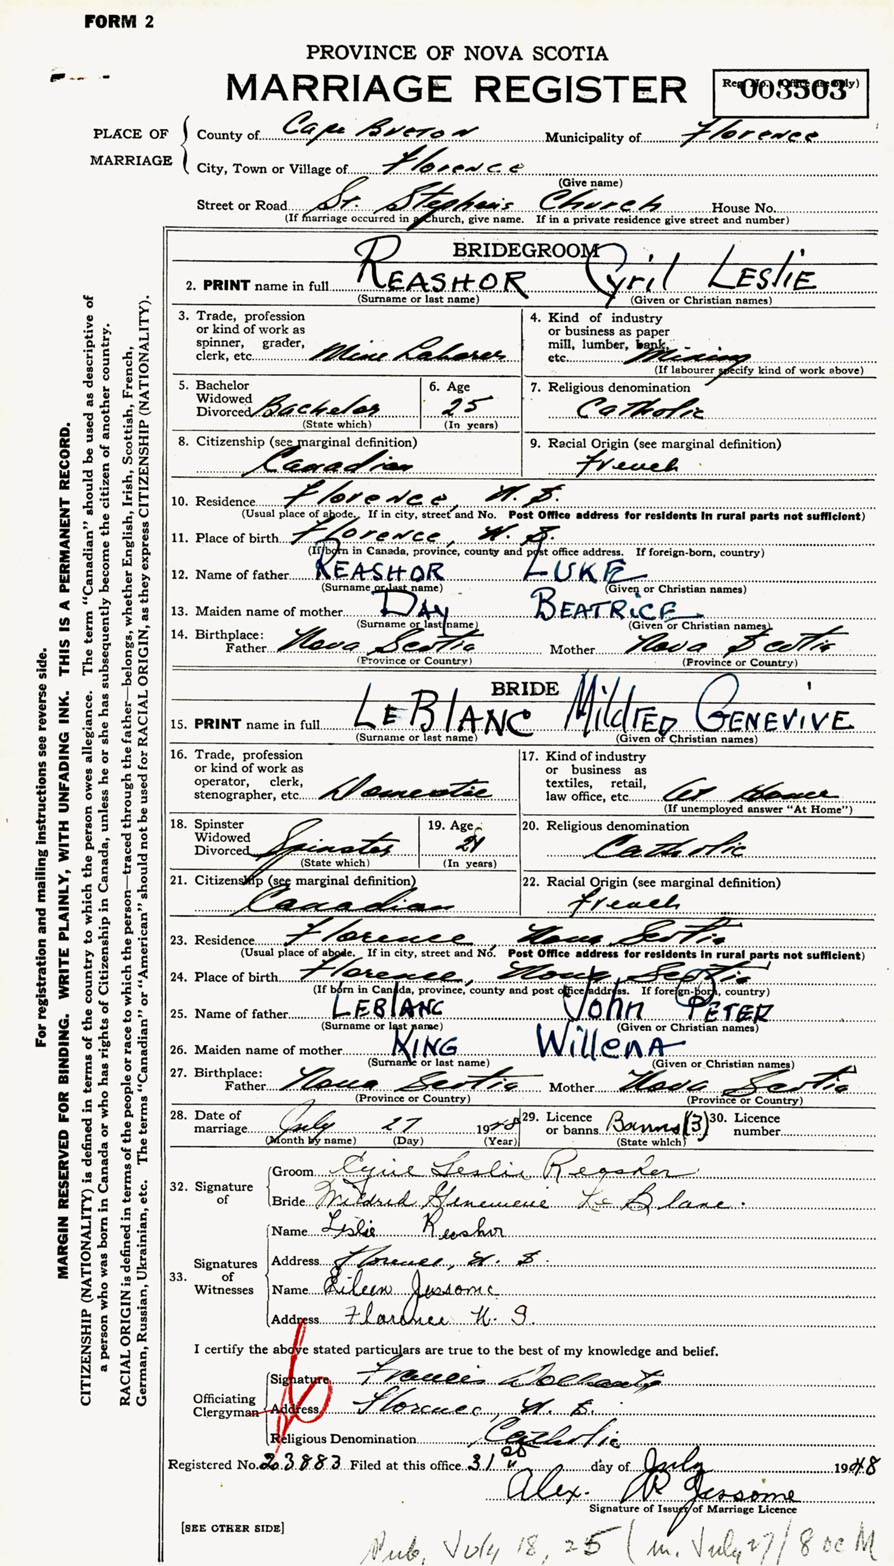 FORM 2
PROVINCE OF NOVA SCOTIA
MARRIAGE REGISTER
003503
PLACE OF MARRIAGE
County of Cape Breton Municipality of Florence
City, Town or Village of Florence
(Give name)
Street or Road St. Stephen's Church House No.
(If marriage occurred in a church, give name. If in a private residence give street and number)
BRIDEGROOM
2. PRINT name in full REASHOR Cyril LESLIE
(Surname or last name) (Given or Christian names)
3. Trade, profession or kind of work as spinner, grader, clerk, etc. Mine Laborer
4. Kind of industry or business as paper mill, lumber, bank, etc. Mining
(If labourer specify kind of work above)
5. Bachelor Widowed Divorced Bachelor
(State which)
6. Age 25
(In years)
7. Religious denomination
Catholic
8. Citizenship (see marginal definition)
Canadian
9. Racial Origin (see marginal definition)
French
10. Residence Florence, N.S.
(Usual place of abode. If in city, street and No. Post Office address for residents in rural parts not sufficient)
11. Place of birth Florence, N.S.
(If born in Canada, province, county and post office address. If foreign-born, country)
12. Name of father REASHOR LUKE
(Surname or last name) (Given or Christian names)
13. Maiden name of mother DAY BEATRICE
(Surname or last name) (Given or Christian names)
14. Birthplace:
Father Nova Scotia Mother Nova Scotia
(Province or Country) (Province or Country)
BRIDE
15. PRINT name in full LEBLANC MilDRED GENEVIVE
(Surname or last name) (Given or Christian names)
16. Trade, profession or kind of work as operator, clerk, stenographer, etc. Domestic
17. Kind of industry or business as textiles, retail, law office, etc. At Home
(If unemployed answer "At Home")
18. Spinster Widowed Divorced Spinster
(State which)
19. Age 21
(In years)
20. Religious denomination
Catholic
21. Citizenship (see marginal definition)
Canadian
22. Racial Origin (see marginal definition)
French
23. Residence Florence, Nova Scotia
(Usual place of abode. If in city, street and No. Post Office address for residents in rural parts not sufficient)
24. Place of birth Florence, Nova Scotia
(If born in Canada, province, county and post office address. If foreign-born, country)
25. Name of father LEBLANC John PETER
(Surname or last name) (Given or Christian names)
26. Maiden name of mother KING WillENA
(Surname or last name) (Given or Christian names)
27. Birthplace:
Father Nova Scotia Mother Nova Scotia
(Province or Country) (Province or Country)
28. Date of marriage July 27 1948
(Month by name) (Day) (Year)
29. Licence or banns Banns (3)
(State which)
30. Licence number
32. Signature of
Groom Cyril Leslie Reasher
Bride Mildred Genevieve Le Blanc.
33. Signatures of Witnesses
Name Leslie Reashor
Address Florence, N.S.
Name Eileen Jessome
Address Florence N.S.
I certify the above stated particulars are true to the best of my knowledge and belief.
Officiating Clergyman
Signature Francis
Address Florence, N.S.
Religious Denomination Catholic
Registered No. 23883 Filed at this office 31st day of July 1948
Alex. R Jessome
Signature of Issuer of Marriage Licence
[SEE OTHER SIDE]
Pub. July 18, 25 (m. July 27/8 oc M
For registration and mailing instructions see reverse side.
MARGIN RESERVED FOR BINDING. WRITE PLAINLY, WITH UNFADING INK. THIS IS A PERMANENT RECORD.
CITIZENSHIP (NATIONALITY) is defined in terms of the country to which the person owes allegiance. The term "Canadian" should be used as descriptive of
a person who was born in Canada or who has rights of Citizenship in Canada, unless he or she has subsequently become the citizen of another country.
RACIAL ORIGIN is defined in terms of the people or race to which the person—traced through the father—belongs, whether English, Irish, Scottish, French,
German, Russian, Ukrainian, etc. The terms "Canadian" or "American" should not be used for RACIAL ORIGIN, as they express CITIZENSHIP (NATIONALITY).